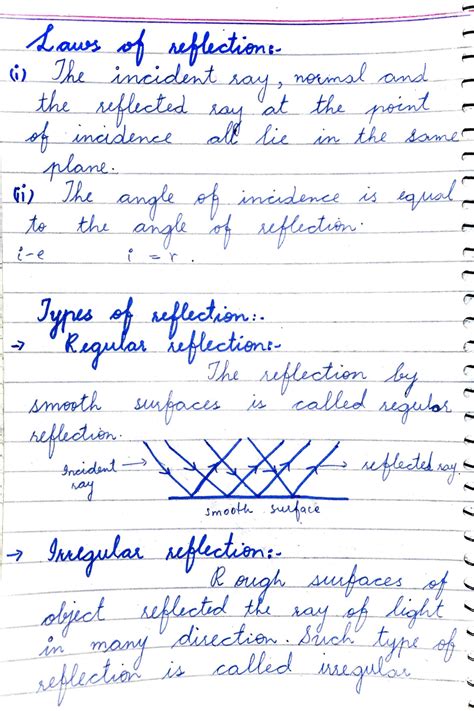 Laws of reflection:-
(i) The incident ray, normal and
the reflected ray at the point
of incidence all lie in the same
plane.
(ii) The angle of incidence is equal
to the angle of reflection.
i-e i = r.
Types of reflection:-
→ Regular reflection:-
The reflection by
smooth surfaces is called regular
reflection.
Incident ray → → reflected ray.
smooth surface
→ Irregular reflection:-
Rough surfaces of
object reflected the ray of light
in many direction. Such type of
reflection is called irregular